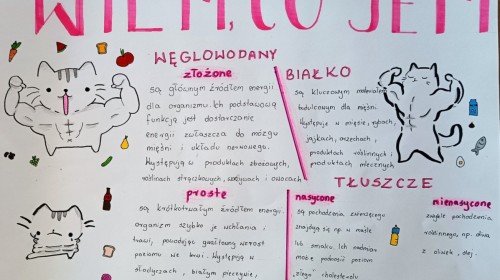 WIEM, CO JEM
WĘGLOWODANY
złożone
są głównym źródłem energii
dla organizmu. Ich podstawową
funkcją jest dostarczanie
energii zwłaszcza do mózgu
mięśni i układu nerwowego.
Występują w produktach zbożowych,
roślinach strączkowych, warzywach i owocach
proste
są krótkotrwałym źródłem energii.
organizm szybko je wchłania i
trawi, powodując gwałtowny wzrost
poziomu we krwi. Występują w
słodyczach, białym pieczywie,
BIAŁKO
są kluczowym materiałem
budulcowym dla mięśni.
Występuje w mięsie, rybach,
jajkach, orzechach,
produktach roślinnych i
produktach mlecznych
TŁUSZCZE
nasycone
są pochodzenia zwierzęcego
znajdują się np. w maśle
lub smalcu. Ich nadmiar
może podnosić poziom
"złego" cholesterolu
nienasycone
zwykle pochodzenia
roślinnego, np. oliwa
z oliwek, olej.